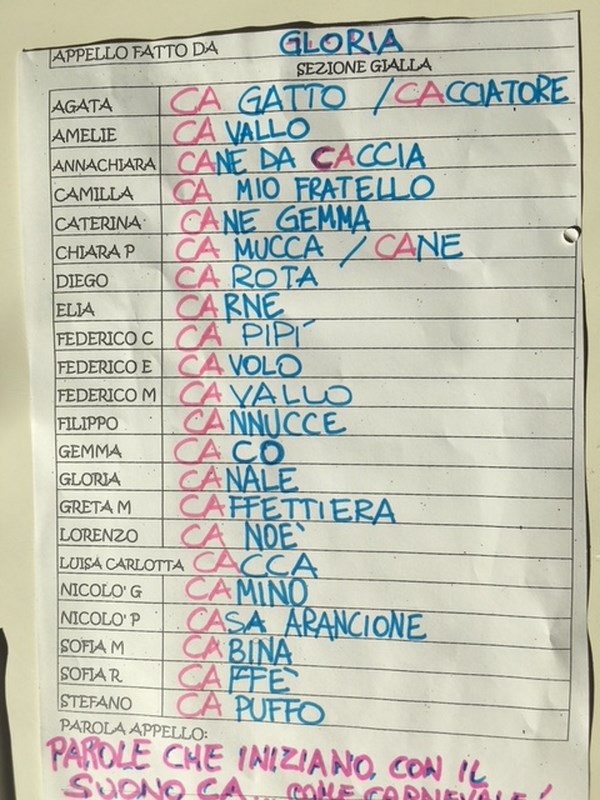 APPELLO FATTO DA GLORIA
SEZIONE GIALLA
AGATA CA GATTO / CACCIATORE
AMELIE CA VALLO
ANNACHIARA CANE DA CACCIA
CAMILLA CA MIO FRATELLO
CATERINA CANE GEMMA
CHIARA P CA MUCCA / CANE
DIEGO CA ROTA
ELIA CARNE
FEDERICO C CA PIPI'
FEDERICO E CAVOLO
FEDERICO M CAVALLO
FILIPPO CANNUCCE
GEMMA CA CO
GLORIA CANALE
GRETA M CAFFETTIERA
LORENZO CA NOE'
LUISA CARLOTTA CACCA
NICOLO' G CAMINO
NICOLO' P CASA ARANCIONE
SOFIA M CABINA
SOFIA R CAFFE'
STEFANO CA PUFFO
PAROLA APPELLO:
PAROLE CHE INIZIANO CON IL
SUONO CA... COME CARNEVALE!